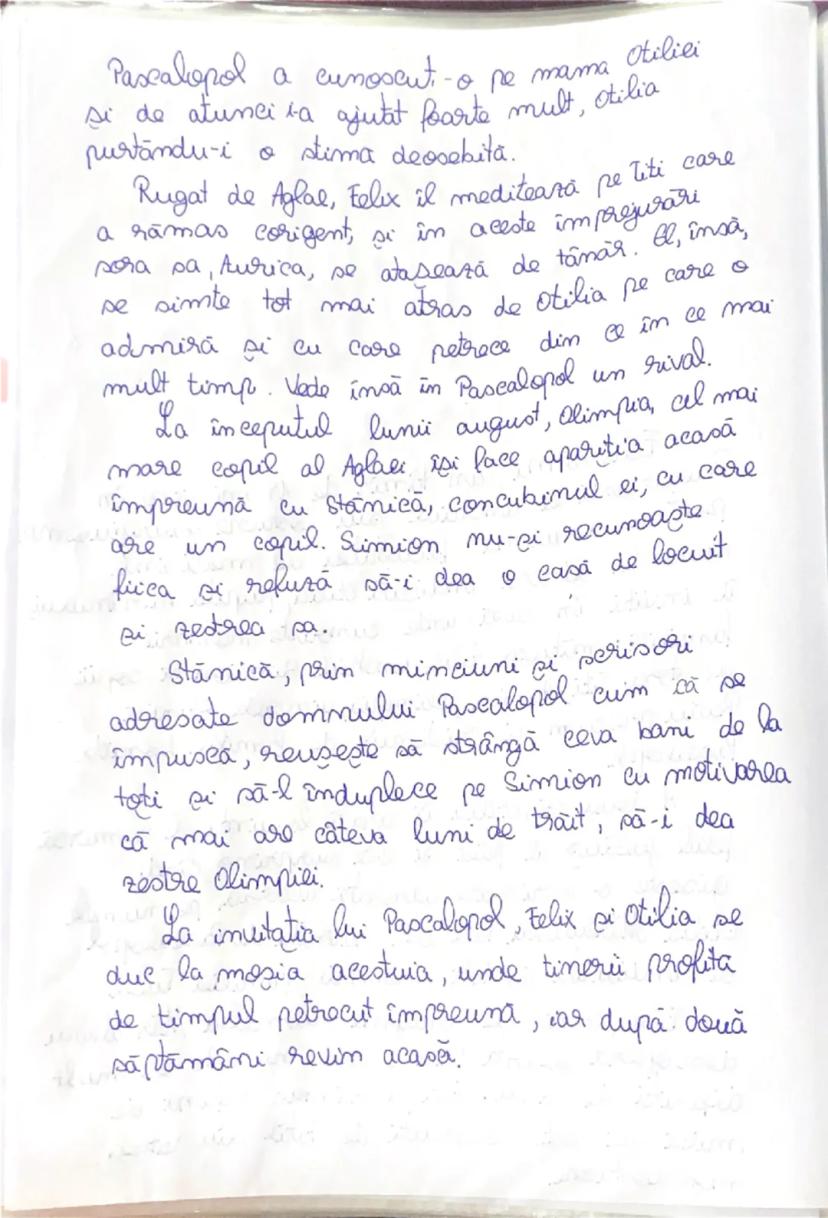 Pascalopol a cunoscut-o pe mama Otiliei
și de atunci i-a ajutat foarte mult, Otilia
purtându-i o stimă deosebită.
Rugat de Aglae, Felix îl meditează pe Titi care
a rămas corigent, și în aceste împrejurări
sora sa, Aurica, se atașează de tânăr. El, însă,
se simte tot mai atras de Otilia pe care o
admiră și cu care petrece din ce în ce mai
mult timp. Vede însă în Pascalopol un rival.
La începutul lunii august, Olimpia, cel mai
mare copil al Aglaei, își face apariția acasă
împreună cu Stănică, concubinul ei, cu care
are un copil. Simion nu-și recunoaște
fiica și refuză să-i dea o casă de locuit
și zestrea sa.
Stănică, prin minciuni și scrisori
adresate domnului Pascalopol cum că se
împușcă, reușește să strângă ceva bani de la
toți și să-l înduplece pe Simion cu motivarea
că mai are câteva luni de trăit, să-i dea
zestre Olimpiei.
La invitația lui Pascalopol, Felix și Otilia se
duc la moșia acestuia, unde tinerii profită
de timpul petrecut împreună, iar după două
săptămâni revin acasă.